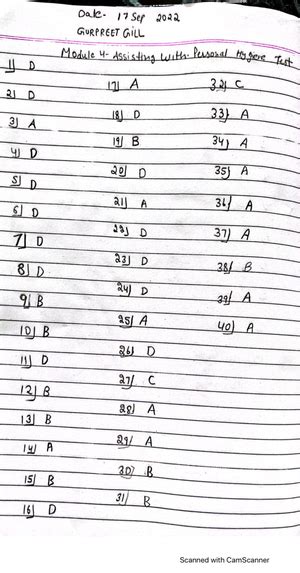 Date- 17 Sep 2022
GURPREET GILL
Module 4- Assisting With Personal Hygiene Test
1) D
2) D
3) A
4) D
5) D
6) D
7) D
8) D
9) B
10) B
11) D
12) B
13) B
14) A
15) B
16) D
17) A
18) D
19) B
20) D
21) A
22) D
23) D
24) D
25) A
26) D
27) C
28) A
29) A
30) B
31) B
32) C
33) A
34) A
35) A
36) A
37) A
38) B
39) A
40) A
Scanned with CamScanner